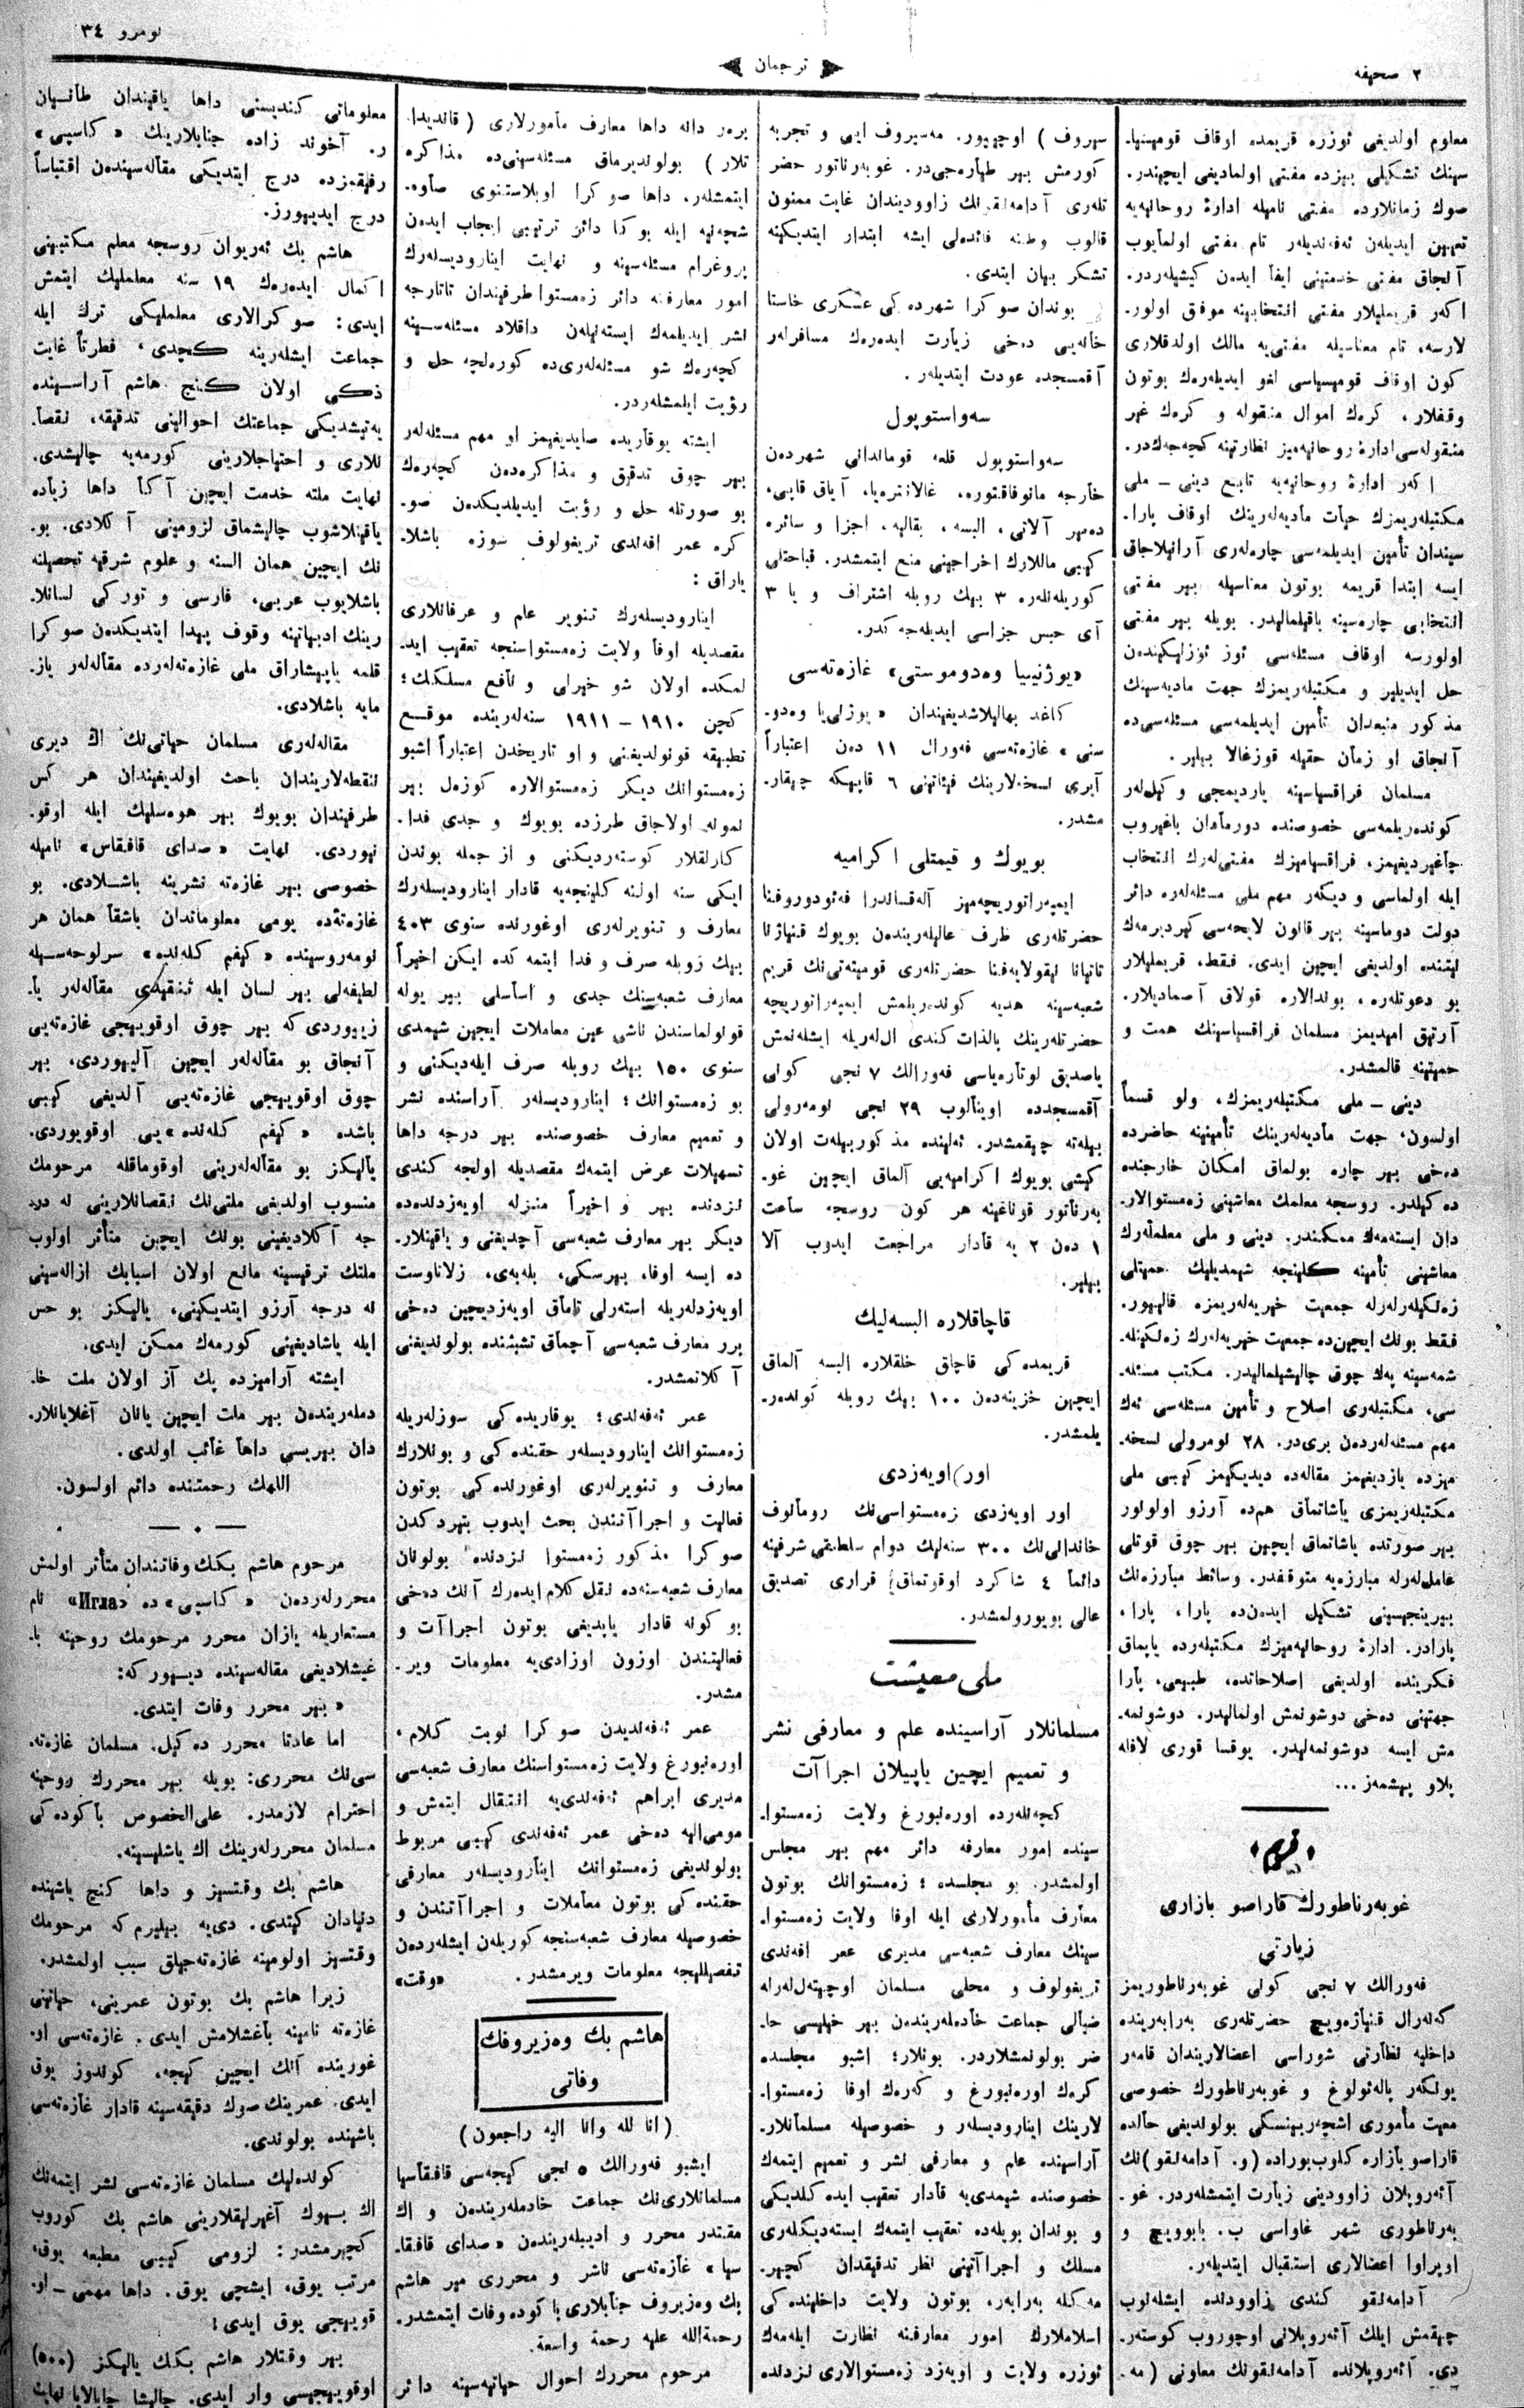 ۲ صحیفه
ترجمان
نومرو ۳٤
معلوم اولدیغی ئوزره قریمده اوقاف قومیسیا-
سینك تشکیلی بیزده مفتی اولمادیغی ایچیندر.
صوك زمانلارده مفتی نامیله ادارهٔ روحانیه‌یه
تعیین ایدیله‌ن ئه‌فه‌ندیله‌ر تام مفتی اولمایوب
آنجاق مفتی خدمتینی ایفا ایده‌ن کیشیله‌ردر.
اکه‌ر قریملیلار مفتی انتخابینه موفق اولور-
لارسه، تام معناسیله مفتی‌یه مالك اولدقلاری
کون اوقاف قومیسیاسی لغو ایدیله‌رەك بوتون
وقفلار، کره‌ك اموال منقوله و کره‌ك غیر
منقوله‌سی ادارهٔ روحانیه‌میز نظارتینه کچه‌جه‌کدر.
اکه‌ر ادارهٔ روحانیه‌یه تابع دینی – ملی
مکتبله‌ریمزك حیات مادیه‌له‌رینك اوقاف پارا-
سیندان تأمین ایدیلمه‌سی چاره‌له‌ری آرانیلاجاق
ایسه ابتدا قریمه بوتون معناسیله بیر مفتی
انتخابی چاره‌سینه باقیلمالیدر. بویله بیر مفتی
اولورسه اوقاف مسئله‌سی ئوز ئوزلیکیندن
حل ایدیلیر و مکتبله‌ریمزك جهت مادیه‌سینك
مذکور منبعدان تأمین ایدیلمه‌سی مسئله‌سی‌ده
آنجاق او زمان حقیله قوزغالا بیلیر.
مسلمان فراقسیاسینه یاردیمجی وکیل‌له‌ر
کونده‌ریلمه‌سی خصوصنده دورمادان باغیروب
چاغیردیغیمز، فراقسیامیزك مفتی‌له‌رك انتخاب
ایله اولماسی و دیکه‌ر مهم ملی مسئله‌له‌ره دائر
دولت دوماسینه بیر قانون لایحه‌سی کیردیرمه‌ك
نیتنده اولدیغی ایچین ایدی. فقط، قریملیلار
بو دعوتله‌ره، بوندالاره قولاق آصمادیلار.
آرتیق امیدیمز مسلمان فراقسیاسینك همت و
حمیتینه قالمشدر.
دینی – ملی مکتبله‌ریمزك، ولو قسماً
اولسون، جهت مادیه‌له‌رینك تأمینینه حاضرده
ده‌خی بیر چاره بولماق امکان خارجنده
ده‌کیلدر. روسجه معلمك معاشینی زه‌مستوالار-
دان ایسته‌مه‌ك ممکندر. دینی و ملی معلملرك
معاشینی تأمینه کلینجه شیمدیلیك حمیتلی
زه‌نکیله‌رله‌رله جمعیت خیریه‌له‌ریمزه قالیور.
فقط بونك ایچین‌ده جمعیت خیریه‌له‌رك زه‌نکینله-
شمه‌سینه په‌ك چوق چالیشیلمالیدر. مکتب مسئله-
سی، مکتبله‌ری اصلاح و تأمین مسئله‌سی ئه‌ك
مهم مسئله‌له‌ردن بری‌در. ۲۸ نومرولی نسخه-
میزده یازدیغیمز مقاله‌ده دیدیکیمز کیبی ملی
مکتبله‌ریمزی یاشاتماق هم‌ده آرزو اولونور
بیر صورتده یاشاتماق ایچین بیر چوق قوتلی
عامل‌له‌رله مبارزه‌یه متوقفدر. وسائط مبارزه‌نك
بیرینجیسینی تشکیل ایده‌ن‌ده پارا، پارا،
پارادر. ادارهٔ روحانیه‌میزك مکتبله‌رده یاپماق
فکرینده اولدیغی اصلاحاتده، طبیعی، پارا
جهتینی ده‌خی دوشونمش اولمالیدر. دوشونمه-
مش ایسه دوشونمه‌لیدر. یوقسا قوری لافله
پلاو پیشمه‌ز...
«قریم»
غوبه‌رناطورك قاراصو بازاری
زیارتی
فه‌ورالك ۷ نجی کونی غوبه‌رناطوریمز
که‌نه‌رال قنیاژه‌ویچ حضرتله‌ری به‌رابه‌رینده
داخلیه نظارتی شوراسی اعضالاریندان قامه‌ر
یونکه‌ر پاله‌ئولوغ و غوبه‌رناطورك خصوصی
معیت مأموری اشچه‌ربینسکی بولولدیغی حالده
قاراصو بازاره کلوب‌بوراده (و. آدامه‌نقو)نك
آئه‌روپلان زاوودینی زیارت ایتمشله‌ردر. غو-
به‌رناطوری شهر غلاواسی ب. بابوویچ و
اوپراوا اعضالاری استقبال ایتدیله‌ر.
آدامه‌نقو کندی زاوودنده ایشله‌نوب
چیقمش ایلك آئه‌روپلانی اوچوروب کوسته‌ر-
دی. آئه‌روپلانده آدامه‌نقونك معاونی (مه-
سیروف) اوچییور. مه‌سیروف ایی و تجربه
کورمش بیر طیاره‌جی‌در. غوبه‌رناتور حضر
تله‌ری آدامه‌نقونك زاوودیندان غایت ممنون
قالوب وطنه فائده‌لی ایشه ابتدار ایتدیکینه
تشکر بیان ایتدی.
بوندان صوکرا شهرده‌کی عسکری خاستا
خانه‌یی ده‌خی زیارت ایده‌رەك مسافرله‌ر
آقمسجده عودت ایتدیله‌ر.
سه‌واستوپول
سه‌واستوپول قلعه قوماندانی شهردن
خارجه مانوفاقتوره، غالانتره‌یا، آیاق قابی،
ده‌میر آلاتی، البسه، بقالیه، اجزا و سائره
کیبی ماللارك اخراجینی منع ایتمشدر. قباحتلی
کوریله‌نله‌ره ۳ بیك روبله اشتراف و یا ۳
آی حبس جزاسی ایدیله‌جه‌کدر.
«یوژنییا وه‌دوموستی» غازه‌ته‌سی
کاغد بهالیلاشدیغیندان «یوزنی‌یا وه‌دو-
ستی» غازه‌ته‌سی فه‌ورال ۱۱ ده‌ن اعتباراً
آیری نسخه‌لارینك فیئاتینی ٦ قاپیکه چیقار-
مشدر.
بویوك و قیمتلی اکرامیه
ایمپه‌راتوریچه‌میز آله‌قساندرا فه‌ئودوروفنا
حضرتله‌ری طرف عالیله‌ریندن بویوك قنیاژنا
تاتیانا نیقولایه‌فنا حضرتله‌ری قومیته‌تی‌نك قریم
شعبه‌سینه هدیه کونده‌ریلمش ایمپه‌راتوریچه
حضرتله‌رینك بالذات کندی ال‌له‌ریله ایشله‌نمش
یاصدیق لوتاره‌یاسی فه‌ورالك ۷ نجی کونی
آقمسجدده اوینالوب ۲۹ نجی نومه‌رولی
بیله‌ته چیقمشدر. ئه‌لینده مذکور بیله‌ت اولان
کیشی بویوك اکرامیه‌یی آلماق ایچین غو-
به‌رناتور قوناغینه هر کون روسجه ساعت
۱ ده‌ن ۲ یه قادار مراجعت ایدوب آلا
بیلیر.
قاچاقلاره البسه‌لیك
قریمده‌کی قاچاق خلقلاره البسه آلماق
ایچین خزینه‌ده‌ن ۱۰۰ بیك روبله کونده‌ر-
یلمشدر.
اور) اویه‌زدی
اور اویه‌زدی زه‌مستواسی‌نك رومانوف
خاندانی‌نك ۳۰۰ سنه‌لیك دوام سلطنتی شرفینه
دائما ٤ شاکرد اوقوتماق قراری تصدیق
عالی بویورولمشدر.
ملی معیشت
مسلمانلار آراسینده علم و معارفی نشر
و تعمیم ایچین یاپیلان اجراآت
کچه‌نله‌رده اوره‌نبورغ ولایت زه‌مستوا-
سینده امور معارفه دائر مهم بیر مجلس
اولمشدر. بو مجلسده؛ زه‌مستوانك بوتون
معارف مأمورلاری ایله اوفا ولایت زه‌مستوا-
سینك معارف شعبه‌سی مدیری عمر افه‌ندی
تریغولوف و محلی مسلمان اوچیته‌ل‌له‌رله
ضیالی جماعت خادمله‌ریندن بیر خیلیسی حا-
ضر بولونمشلاردر. بونلار؛ اشبو مجلسده
کره‌ك اوره‌نبورغ و که‌ره‌ك اوفا زه‌مستوا-
لارینك اینارودیسله‌ر و خصوصیله مسلمانلار-
آراسینده علم و معارفی نشر و تعمیم ایتمه‌ك
خصوصنده شیمدی‌یه قادار تعقیب ایده کلدیکی
و بوندان بویله‌ده تعقیب ایتمه‌ك ایسته‌دیکله‌ری
مسلك و اجراآتینی نظر تدقیقدان کچیر-
مه‌کله به‌رابه‌ر، بوتون ولایت داخلنده‌کی
اسلاملارك امور معارفینه نظارت ایله‌مه‌ك
ئوزره ولایت و اویه‌زد زه‌مستوالاری نزدنده
بره‌ر دانه داها معارف مأمورلاری (قاندیدا-
تلار) بولوندیرماق مسئله‌سینی‌ده مذاکره
ایتمشله‌ر، داها صوکرا اوبلاستنوی صاوه-
شچه‌نیه ایله بوکا دائر ترتیبی ایجاب ایدن
پروغرام مسئله‌سینه و نهایت اینارودیسله‌رك
امور معارفنه دائر زه‌مستوا طرفیندان تاتارجه
نشر ایدیلمه‌ك ایسته‌نیله‌ن داقلاد مسئله‌سینه
کچه‌رەك شو مسئله‌له‌ری‌ده کوره‌لجه حل و
رؤیت ایلمشله‌ردر.
ایشته یوقاریده صایدیغیمز او مهم مسئله‌له‌ر
بیر چوق تدقیق و مذاکره‌ده‌ن کچه‌رەك
بو صورتله حل و رؤیت ایدیلدیکدن صو-
کره عمر افه‌ندی تریغولوف سوزه باشلا-
یاراق:
اینارودیسله‌رك تنویر عام و عرفانلاری
مقصدیله اوفا ولایت زه‌مستواسنجه تعقیب اید-
لمکده اولان شو خیرلی و نافع مسلكك؛
کچن ۱۹۱۰ – ۱۹۱۱ سنه‌له‌رینده موقع
تطبیقه قونولدیغنی و او تاریخدن اعتباراً اشبو
زه‌مستوانك دیکر زه‌مستوالاره کوزه‌ل بیر
نمونه اولاجاق طرزده بویوك و جدی فدا-
کارلقلار کوسته‌ردیکنی و از جمله بوندن
ایکی سنه اولنه کلینجه‌یه قادار اینارودیسله‌رك
معارف و تنویرله‌ری اوغورنده سنوی ٤٠۳
بیك روبله صرف و فدا ایتمه‌کده ایکن اخیراً
معارف شعبه‌سینك جدی و اساسلی بیر یوله
قولولماسندن ناشی عین معاملات ایچین شیمدی
سنوی ۱۵۰ بیك روبله صرف ایله‌دیکنی و
بو زه‌مستوانك؛ اینارودیسله‌ر آراسنده نشر
و تعمیم معارف خصوصنده بیر درجه داها
تسهیلات عرض ایتمه‌ك مقصدیله اولجه کندی
نزدنده بیر و اخیراً منزله اویه‌زدلده‌ده
دیگر بیر معارف شعبه‌سی آچدیغنی و یاقینلار-
ده ایسه اوفا، بیرسکی، بله‌به‌ی، زلاتاوست
اویه‌زدله‌ریله استه‌رلی تاماق اویه‌زدیچین ده‌خی
برر معارف شعبه‌سی آچماق تشبثنده بولولدیغنی
آکلاتمشدر.
عمر ئه‌فه‌ندی؛ یوقاریده‌کی سوزله‌ریله
زه‌مستوانك اینارودیسله‌ر حقنده‌کی و بونلارك
معارف و تنویرله‌ری اوغورنده‌کی بوتون
فعالیت و اجراآتندن بحث ایدوب بیتیردکدن
صوکرا مذکور زه‌مستوا نزدنده بولونان
معارف شعبه‌سنه‌ده نقل کلام ایده‌رك آنك ده‌خی
بو کونه قادار یاپدیغی بوتون اجراآت و
فعالیتندن اوزون اوزادی‌یه معلومات ویر-
مشدر.
عمر ئه‌فه‌ندیدن صوکرا نوبت کلام،
اوره‌نبورغ ولایت زه‌مستواسنك معارف شعبه‌سی
مدیری ابراهیم ئه‌فه‌ندی‌یه انتقال ایتمش و
مومی‌الیه ده‌خی عمر ئه‌فه‌ندی کیبی مربوط
بولولدیغی زه‌مستوانك اینارودیسله‌ر معارفی
حقنده‌کی بوتون معاملات و اجراآتندن و
خصوصیله معارف شعبه‌سنجه کوریلن ایشله‌ردن
تفصیللیجه معلومات ویرمشدر. «وقت»
هاشم بك وه‌زیروفك
وفاتی
(انا لله وانا الیه راجعون)
ایشبو فه‌ورالك ۵ نجی کیجه‌سی قافقاسیا
مسلمانلاری‌نك جماعت خادمله‌ریندن و اك
مقتدر محرر و ادیبله‌ریندن «صدای قافقا-
سیا» غازه‌ته‌سی ناشر و محرری میر هاشم
بك وه‌زیروف جنابلاری باکوده وفات ایتمشدر.
رحمةالله علیه رحمة واسعة.
مرحوم محررك احوال حیاتیه‌سینه دائر
معلوماتی کندیسنی داها یاقیندان طانییان
ر. آخوند زاده جنابلارینك «کاسپی»
رفیقمزده درج ایتدیکی مقاله‌سیندن اقتباساً
درج ایدییورز.
هاشم بك ئه‌ریوان روسجه معلم مکتبینی
اکمال ایده‌رەك ۱۹ سنه معلملیك ایتمش
ایدی؛ صوکرالاری معلملیکی ترك ایله
جماعت ایشله‌رینه کچدی، فطرتاً غایت
ذکی اولان کنج هاشم آراسینده
یه‌تیشدیکی جماعتك احوالینی تدقیقه، نقصا-
نلاری و احتیاجلارینی کورمه‌یه چالیشدی.
نهایت ملته خدمت ایچین آکا داها زیاده
یاقینلاشوب چالیشماق لزومینی آکلادی. بو-
نك ایچین همان السنه و علوم شرقیه تحصیلنه
باشلایوب عربی، فارسی و تورکی لسانلا-
رینك ادبیاتینه وقوف پیدا ایتدیکدن صوکرا
قلمه یاپیشاراق ملی غازه‌ته‌له‌رده مقاله‌له‌ر یاز-
مایه باشلادی.
مقاله‌له‌ری مسلمان حیاتی‌نك اك دیری
نقطه‌لاریندان باحث اولدیغیندان هر کس
طرفیندان بویوك بیر هوه‌سلیك ایله اوقو-
نیوردی. نهایت «صدای قافقاس» نامیله
خصوصی بیر غازه‌ته نشرینه باشلادی. بو
غازه‌ته‌ده یومی معلوماتدان باشقا همان هر
نومه‌روسینده «کیفم کله‌نده» سرلوحه‌سیله
لطیفه‌لی بیر لسان ایله تنقیدی مقاله‌له‌ر یا-
زییوردی که بیر چوق اوقوییجی غازه‌ته‌یی
آنجاق بو مقاله‌له‌ر ایچین آلییوردی، بیر
چوق اوقوییجی غازه‌ته‌یی آلدیغی کیبی
باشده «کیفم کله‌نده»یی اوقویوردی.
یالیکز بو مقاله‌له‌رینی اوقوماقله مرحومك
منسوب اولدیغی ملتی‌نك نقصانلارینی نه در-
جه آکلادیغینی بونك ایچین متأثر اولوب
ملتك ترقیسینه مانع اولان اسبابك ازاله‌سینی
نه درجه آرزو ایتدیکینی، یالیکز بو حس
ایله یاشادیغینی کورمه‌ك ممکن ایدی.
ایشته آرامیزده پك آز اولان ملت خا-
دمله‌ریندن بیر ملت ایچین یانان آغلایانلار-
دان بیریسی داها غائب اولدی.
اللهك رحمتنده دائم اولسون.
مرحوم هاشم بکك وفاتندان متأثر اولمش
محررله‌ردن «کاسپی»ده «Игла» نام
مستعاریله یازان محرر مرحومك روحینه با-
غیشلادیغی مقاله‌سینده دیییور که:
«بیر محرر وفات ایتدی.
اما عادتا محرر ده‌کیل. مسلمان غازه‌ته-
سی‌نك محرری: بویله بیر محررك روحینه
احترام لازمدر. علی‌الخصوص باکوده‌کی
مسلمان محررله‌رینك اك یاشلیسینه.
هاشم بك وقتسیز و داها کنج یاشینده
دنیادان کیتدی. دی‌یه بیلیرم که مرحومك
وقتسیز اولومینه غازه‌ته‌جیلق سبب اولمشدر.
زیرا هاشم بك بوتون عمرینی، حیاتینی
غازه‌ته نامینه باغشلامش ایدی. غازه‌ته‌سی او-
غورینده آنك ایچین کیجه، کوندوز یوق
ایدی. عمرینك صوك دقیقه‌سینه قادار غازه‌ته‌سی
باشینده بولوندی.
کونده‌لیك مسلمان غازه‌ته‌سی نشر ایتمه‌نك
اك بیوك آغیرلیقلارینی هاشم بك کوروب
کچیرمشدر: لزومی کیبی مطبعه یوق،
مرتب یوق، ایشچی یوق. داها مهمی – او-
قویجی یوق ایدی!
بیر وقتلار هاشم بکك یالیکز (۵۰۰)
اوقوییجیسی وار ایدی. چالیشا چابالایا نهایت